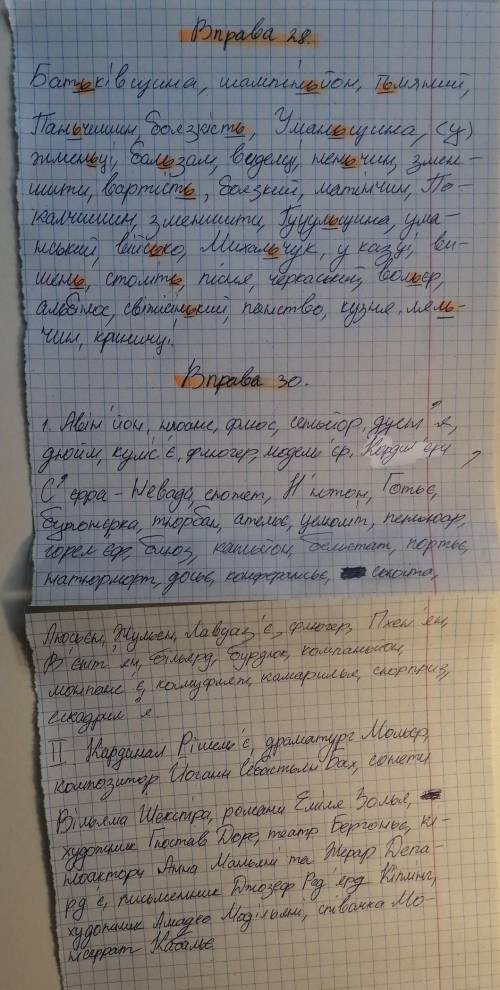 Вправа 28.
Батьківщина, шампіньйон, тьмяний,
Паньчишин, боязкість, Уманьщина, (у)
жменьці, бальзам, виделці, неньчин, змен-
шити, вартість, боязкий, матінчин, По-
калчишин, зменшити, Гуцульщина, ума-
нський, військо, Михальчук, у казці, ви-
шень, стоять, пісня, черкаський, вольєр,
альбінос, світлісінький, панство, кузня, ляль-
чин, криниці.
Вправа 30.
1. Авін'йон, нюанс, флюс, сеньйор, дуен'я,
дюйм, куліс'є, флюгер, модел'єр, Кордил'єри,
С'єрра-Невада, сюжет, Н'ютон, Готьє,
бутоньєрка, тюрбан, ательє, цемоліт, пеньюар,
горел'єф, блюз, каньйон, бельєтаж, портьє,
натюрморт, досьє, конферансьє, секонта,
Люсьєн, Жульєн, Лавуаз'є, флюгер, Пхен'ян,
В'єнт'ян, більярд, бурдюк, компаньйон,
монпанс'є, комюфляж, камарилья, сюрприз,
ескадрил'я.
II Кардинал Рішел'є, драматург Мольєр,
композитор Йоганн Себастьян Бах, сонети
Вільяма Шекспіра, романи Еміля Золья,
художник Гюстав Доре, театр Бергоньє, кі-
ноактори Анна Маньяні та Жерар Депа-
рд'є, письменник Джозеф Ред'ярд Кіплінг,
художник Амадео Модільяні, співачка Мо-
нсеррат Кабальє.